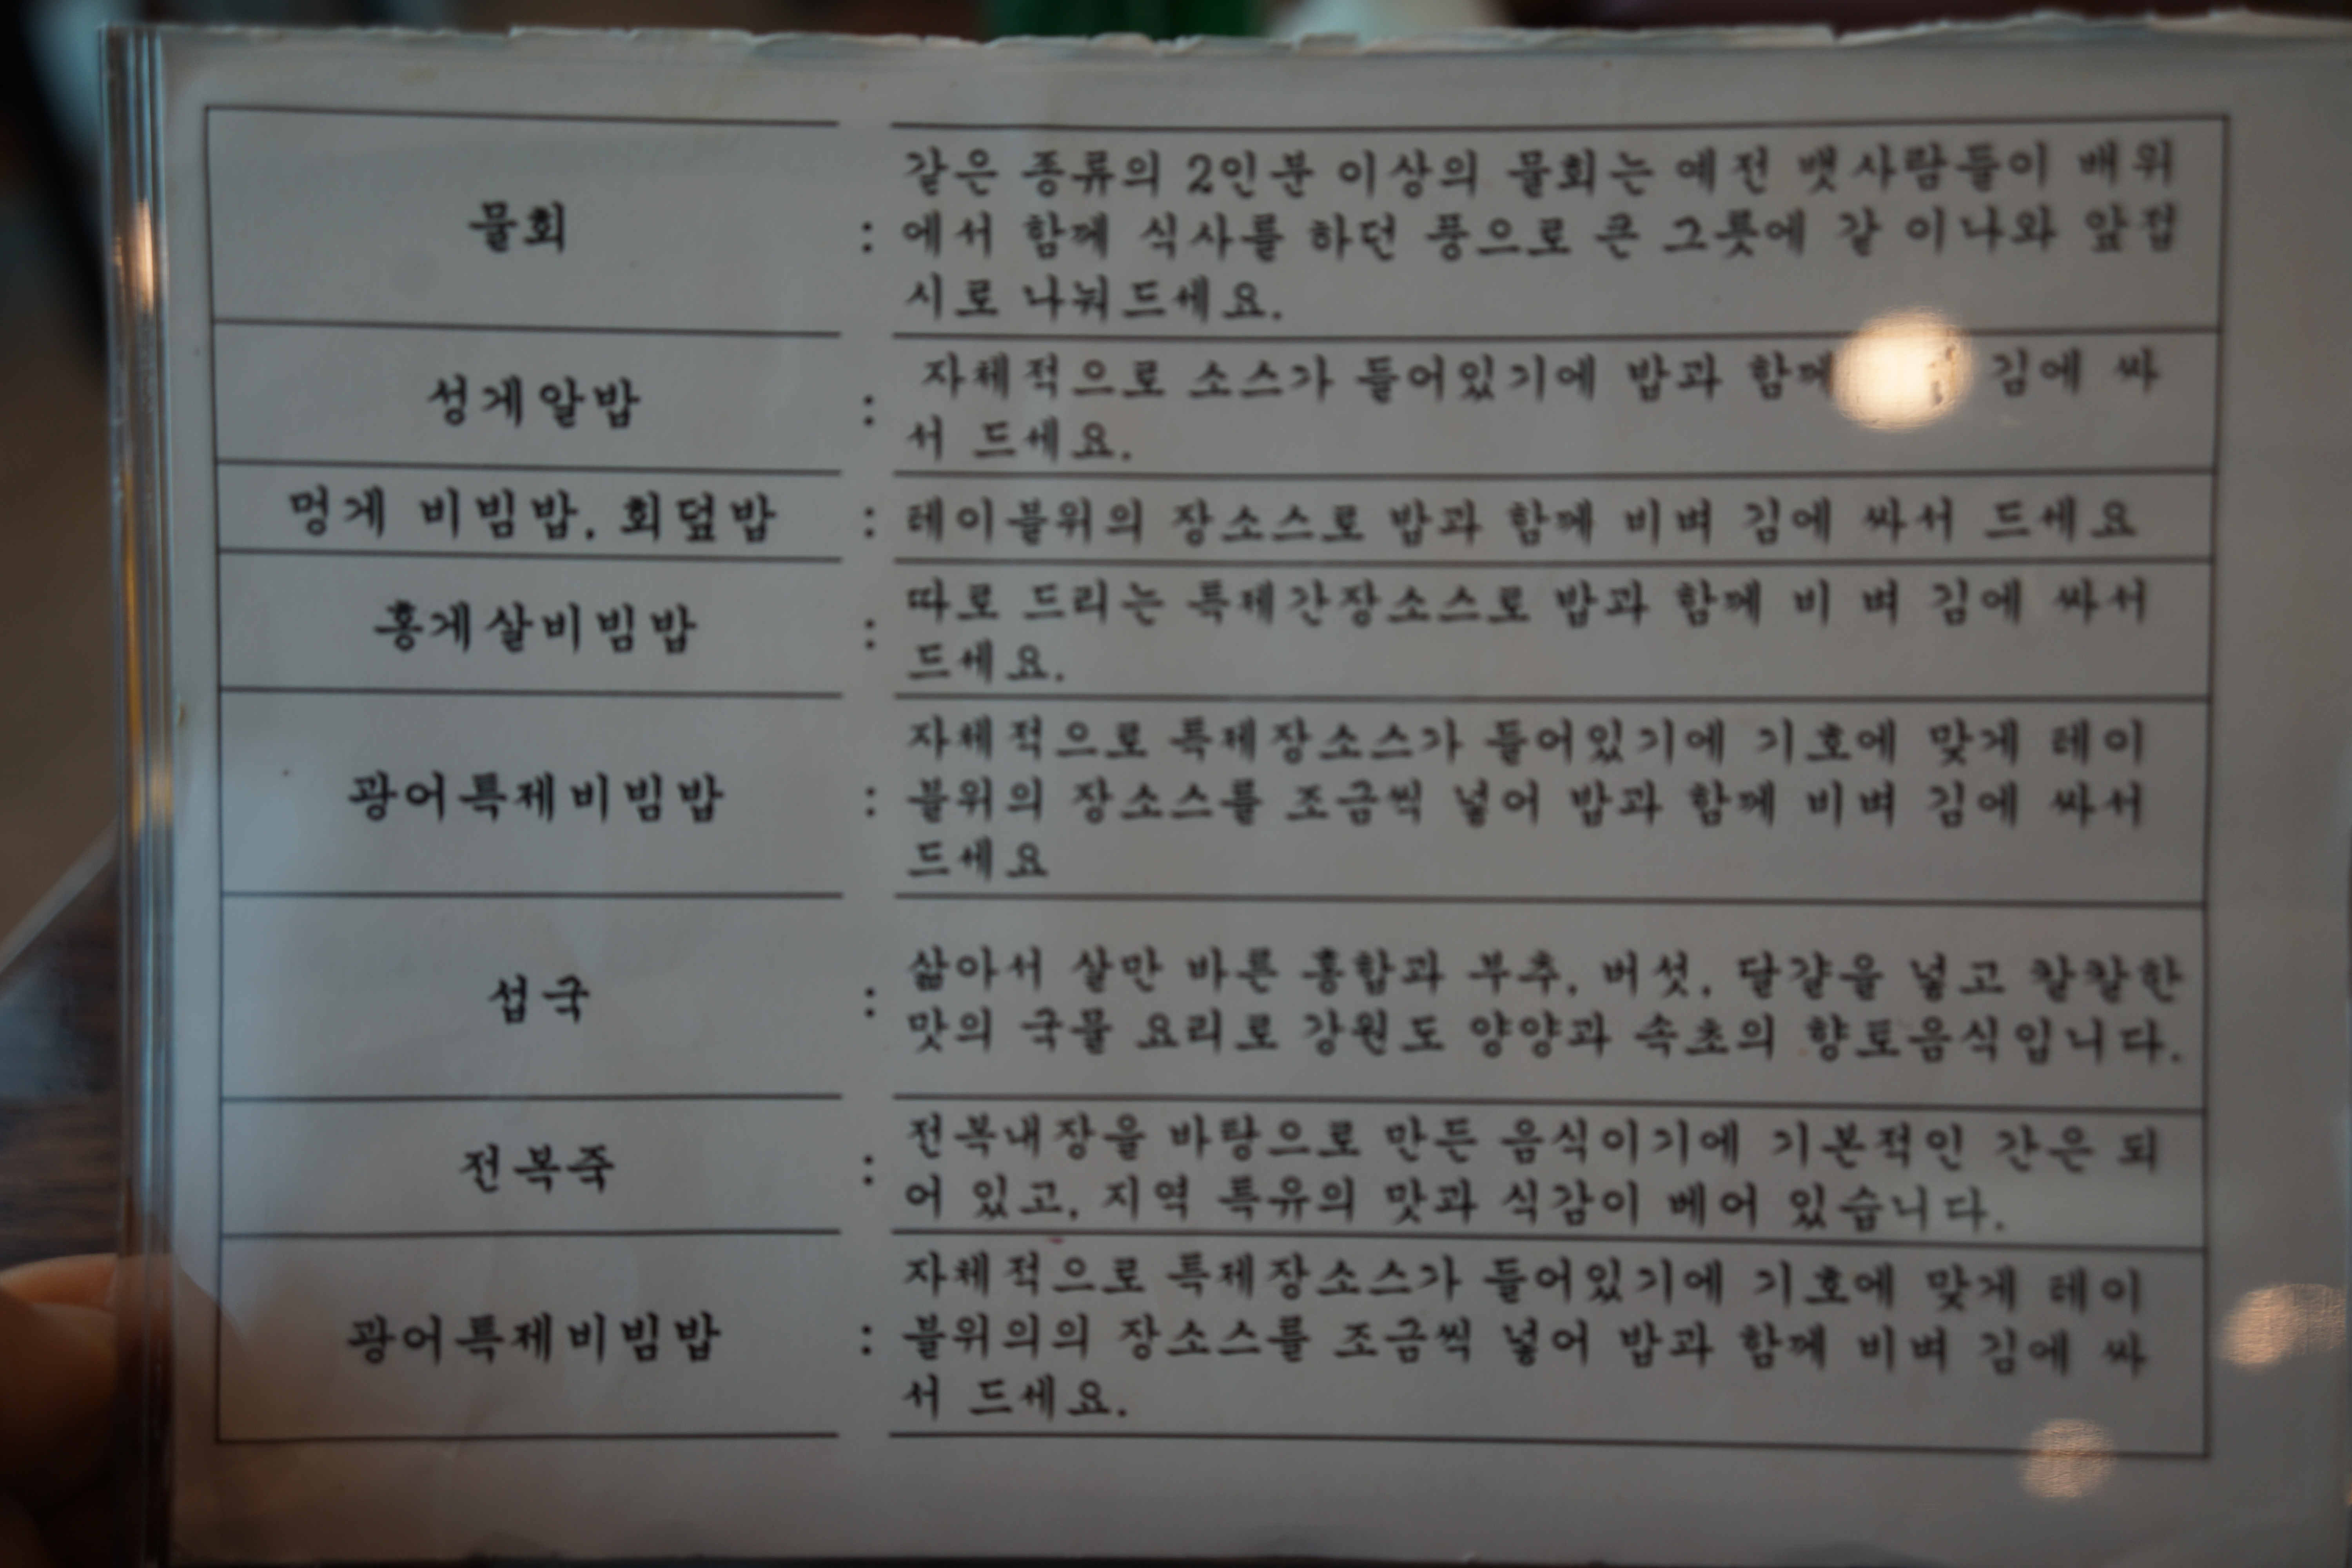 물회 : 같은 종류의 2인분 이상의 물회는 예전 뱃사람들이 배위
에서 함께 식사를 하던 풍으로 큰 그릇에 같 이나와 앞접
시로 나눠드세요.
성게알밥 : 자체적으로 소스가 들어있기에 밥과 함께 김에 싸
서 드세요.
멍게 비빔밥, 회덮밥 : 테이블위의 장소스로 밥과 함께 비벼 김에 싸서 드세요
홍게살비빔밥 : 따로 드리는 특제간장소스로 밥과 함께 비 벼 김에 싸서
드세요.
광어특제비빔밥 : 자체적으로 특제장소스가 들어있기에 기호에 맞게 테이
블위의 장소스를 조금씩 넣어 밥과 함께 비벼 김에 싸서
드세요
섭국 : 삶아서 살만 바른 홍합과 부추, 버섯, 달걀을 넣고 칼칼한
맛의 국물 요리로 강원도 양양과 속초의 향토음식입니다.
전복죽 : 전복내장을 바탕으로 만든 음식이기에 기본적인 간은 되
어 있고, 지역 특유의 맛과 식감이 베어 있습니다.
광어특제비빔밥 : 자체적으로 특제장소스가 들어있기에 기호에 맞게 테이
블위의의 장소스를 조금씩 넣어 밥과 함께 비벼 김에 싸
서 드세요.